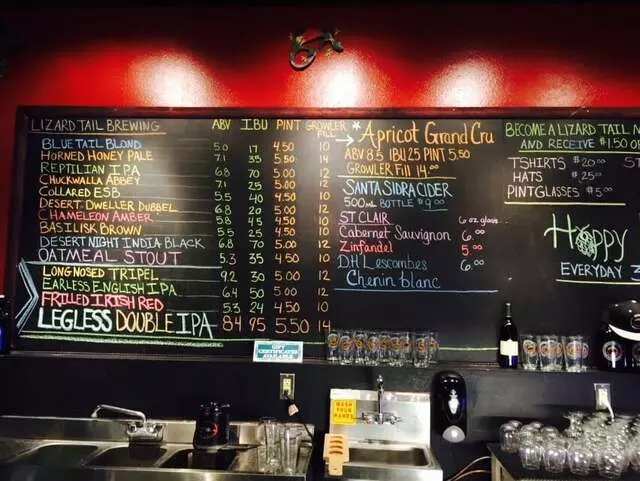 LIZARD TAIL BREWING ABV IBU PINT GROWLER FILL
BLUE TAIL BLOND 5.0 17 4.50 10
HORNED HONEY PALE 7.1 35 5.50 14
REPTILIAN IPA 6.8 70 5.00 12
CHUCKWALLA ABBEY 7.1 25 5.00 12
COLLARED ESB 5.5 40 4.50 10
DESERT DWELLER DUBBEL 6.8 20 5.00 12
CHAMELEON AMBER 5.8 45 4.50 10
BASILISK BROWN 5.5 25 4.50 10
DESERT NIGHT INDIA BLACK 6.8 70 5.00 12
OATMEAL STOUT 5.3 35 4.50 10
LONG NOSED TRIPEL 9.2 30 5.00 12
EARLESS ENGLISH IPA 6.4 50 5.00 12
FRILLED IRISH RED 5.3 24 4.50 10
LEGLESS DOUBLE IPA 8.4 95 5.50 14
Apricot Grand Cru
ABV 8.5 IBU 25 PINT 5.50
GROWLER Fill 14.00
SANTA SIDRA CIDER
500ML BOTTLE $9.00
ST CLAIR 6 oz. glass
Cabernet Sauvignon 6.00
Zinfandel 5.00
D.H. Lescombes 6.00
Chenin blanc
BECOME A LIZARD TAIL
AND RECEIVE $1.50
TSHIRTS $20.00
HATS $25.00
PINTGLASSES $5.00
HOPPY
EVERYDAY
GIFT
CERTIFICATES
AVAILABLE
WASH
YOUR
HANDS